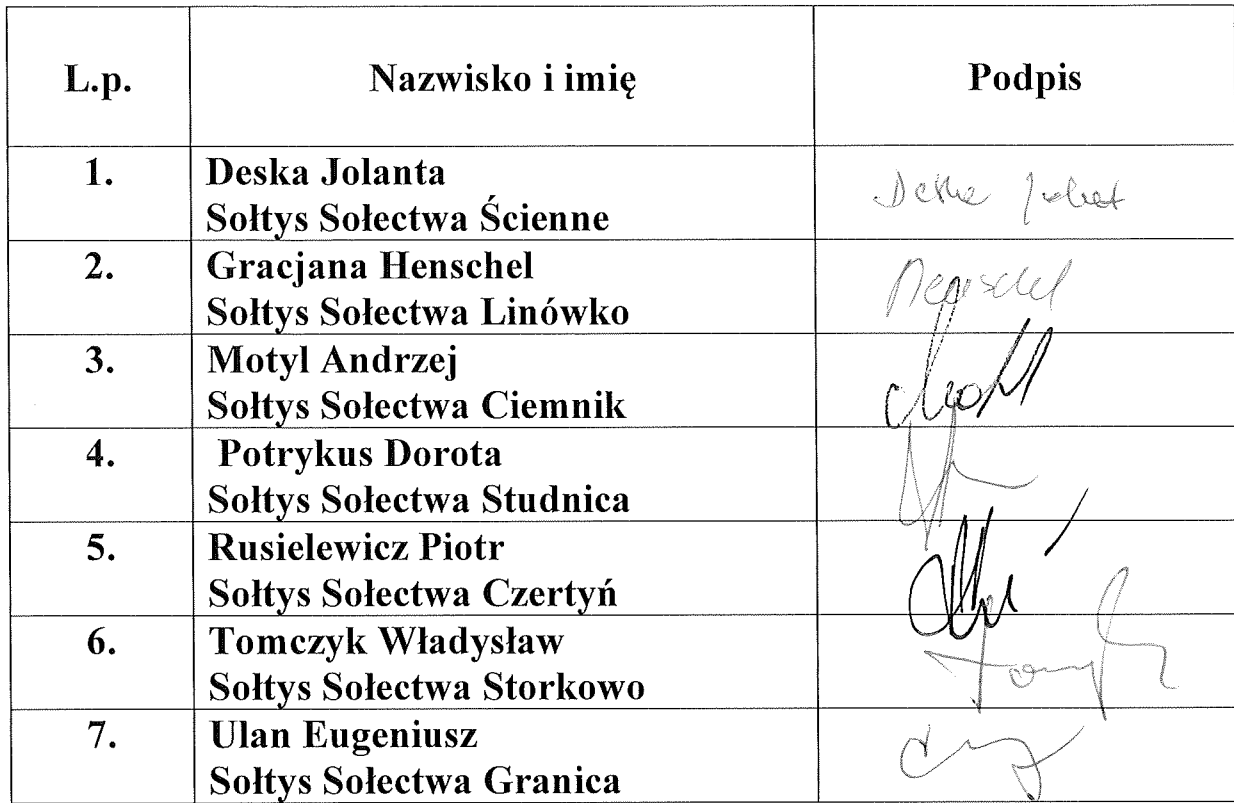 L.p. Nazwisko i imię Podpis
1. Deska Jolanta
Sołtys Sołectwa Ścienne
Deska
2. Gracjana Henschel
Sołtys Sołectwa Linówko
Henschel
3. Motyl Andrzej
Sołtys Sołectwa Ciemnik
4. Potrykus Dorota
Sołtys Sołectwa Studnica
5. Rusielewicz Piotr
Sołtys Sołectwa Czertyń
6. Tomczyk Władysław
Sołtys Sołectwa Storkowo
7. Ulan Eugeniusz
Sołtys Sołectwa Granica